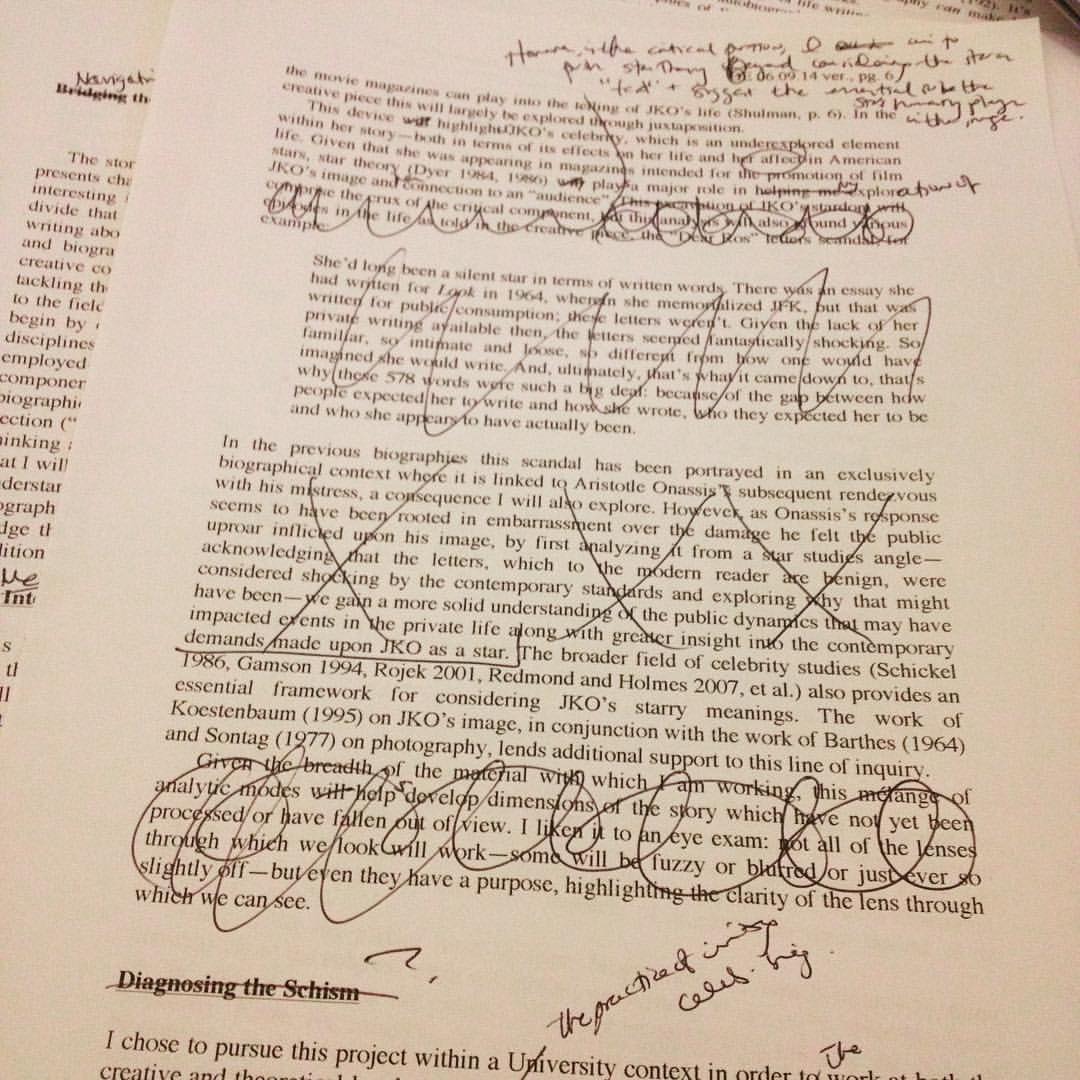 life writing
phy can make
Navigati
Bridging th
The stor
presents cha
interesting
divide that
writing abo
and biogra
creative co
tackling th
to the field
begin by
disciplines
employed
componen
biographi
ection ("
hinking
at I will
derstan
ograph
dge th
lition
Me
Int
beyond considering the star as
06 09.14 ver., pg. 6
"text" + suggest the essential role the
the movie magazines can play into the telling of JKO's life (Shulman, p. 6). In the
creative piece this will largely be explored through juxtaposition.
This device will highlight JKO's celebrity, which is an underexplored element
within her story—both in terms of its effects on her life and her affect in American
life. Given that she was appearing in magazines intended for the promotion of film
stars, star theory (Dyer 1984, 1986) plays a major role in helping my exploration of
JKO's image and connection to an "audience". This excavation of JKO's stardom will
comprise the crux of the critical component, but this analysis will also ground various
episodes in the life as told in the creative piece, the "Dear Ros" letters scandal, for
example:
She'd long been a silent star in terms of written words. There was an essay she
had written for Look in 1964, wherein she memorialized JFK, but that was
written for public consumption; these letters weren't. Given the lack of her
private writing available then, the letters seemed fantastically shocking. So
familiar, so intimate and loose, so different from how one would have
imagined she would write. And, ultimately, that's what it came down to, that's
why these 578 words were such a big deal: because of the gap between how
people expected her to write and how she wrote, who they expected her to be
and who she appears to have actually been.
In the previous biographies this scandal has been portrayed in an exclusively
biographical context where it is linked to Aristotle Onassis's subsequent rendezvous
with his mistress, a consequence I will also explore. However, as Onassis's response
seems to have been rooted in embarrassment over the damage he felt the public
uproar inflicted upon his image, by first analyzing it from a star studies angle—
acknowledging that the letters, which to the modern reader are benign, were
considered shocking by the contemporary standards and exploring why that might
have been—we gain a more solid understanding of the public dynamics that may have
impacted events in the private life along with greater insight into the contemporary
demands made upon JKO as a star. The broader field of celebrity studies (Schickel
1986, Gamson 1994, Rojek 2001, Redmond and Holmes 2007, et al.) also provides an
essential framework for considering JKO's starry meanings. The work of
Koestenbaum (1995) on JKO's image, in conjunction with the work of Barthes (1964)
and Sontag (1977) on photography, lends additional support to this line of inquiry.
Given the breadth of the material with which I am working, this mélange of
analytic modes will help develop dimensions of the story which have not yet been
processed or have fallen out of view. I liken it to an eye exam: not all of the lenses
through which we look will work—some will be fuzzy or blurred or just ever so
slightly off—but even they have a purpose, highlighting the clarity of the lens through
which we can see.
Diagnosing the Schism
?
the practice of writing
celeb. biog.
I chose to pursue this project within a University context in order to work at both th
The
creative and